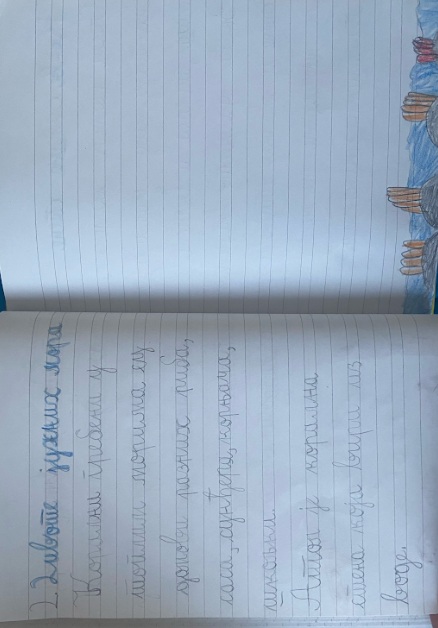 2. Животе јужних мора
Корални гребени у
топлим морима су
домови разних риба,
сунђера, корњача,
шкољки.
Атол је корална
стена која вири из
воде.